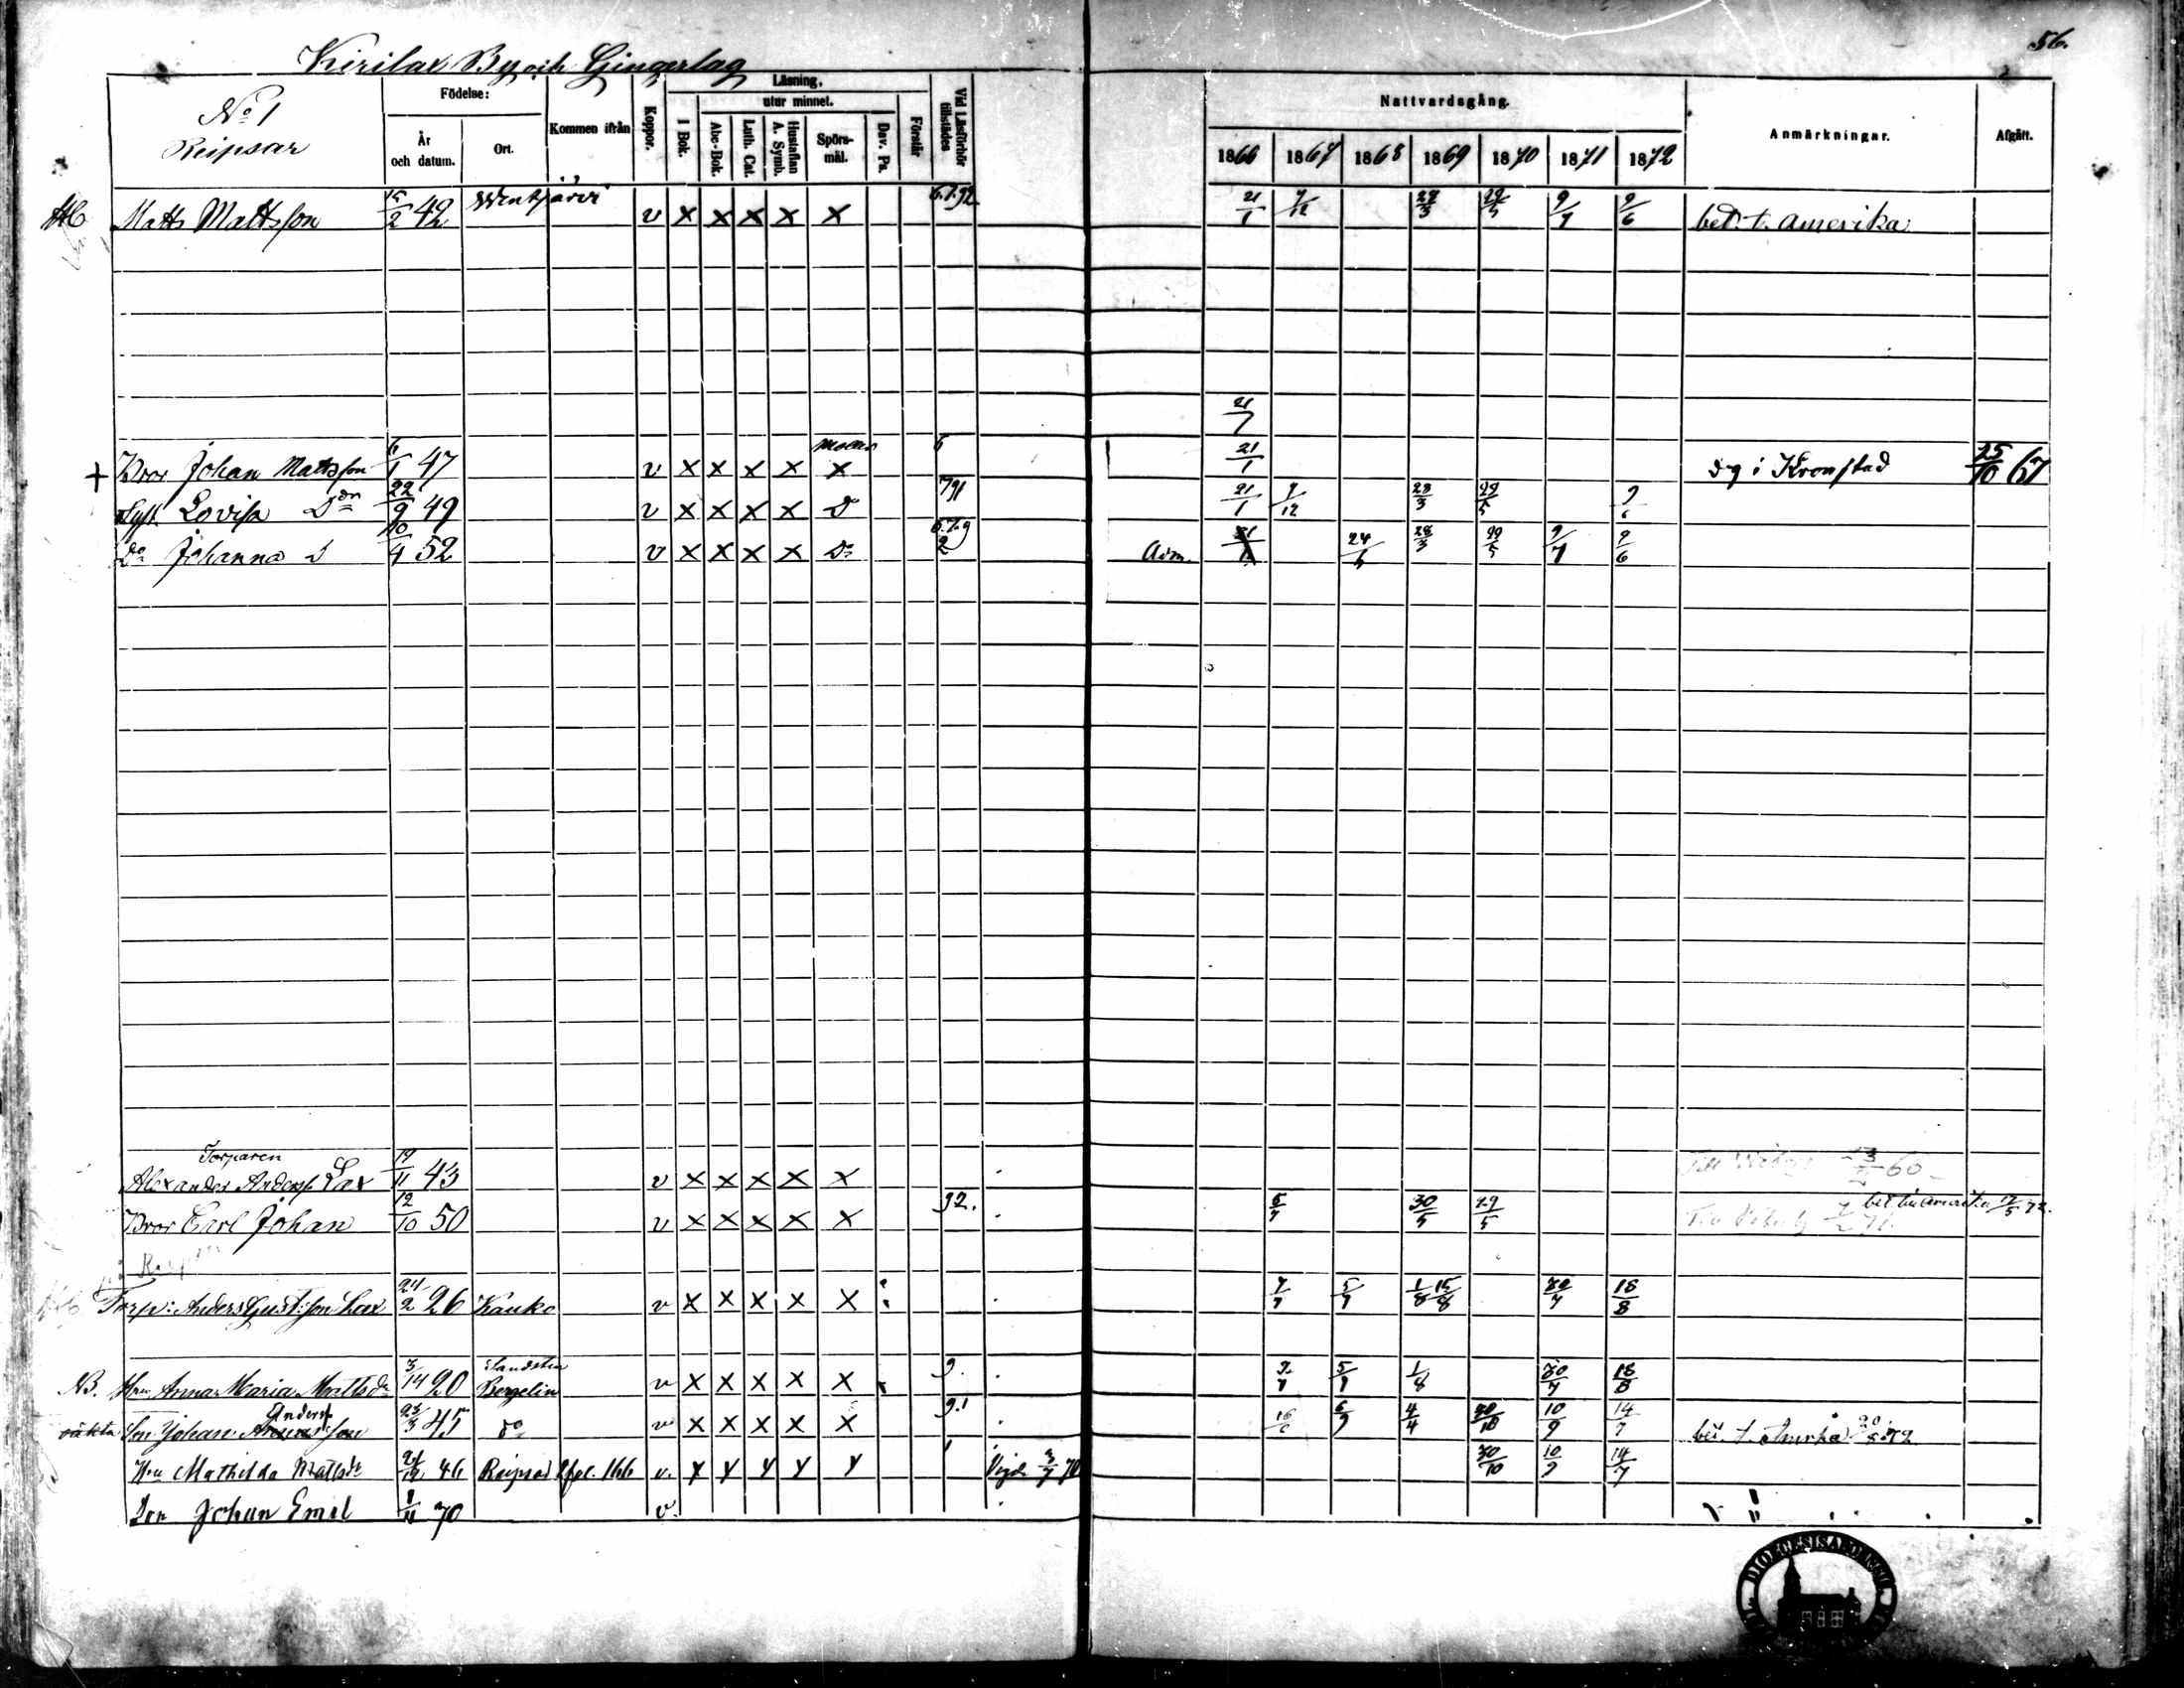 56.
Kirilax By och Gingerlag
No 1
Reipsar
Födelse:
År och datum.
Ort.
Kommen ifrån
Koppor.
Läsning.
I Bok.
utur minnet.
Abc-Bok.
Luth. Cat.
Hustaflan A. Symb.
Spörs-mål.
Dav. Ps.
Förstår
Vid Läsförhör tillstädes
Nattvardsgång.
1866 1867 1868 1869 1870 1871 1872
Anmärkningar.
Afgått.
Matts Mattsson 15/2 42 v x x x x x 6.7.92 21/1 7/12 28/3 29/5 9/7 9/6 bet. t. amerika
21/7
+ Bror Johan Mattsson 6/1 47 v x x x x x 6 21/1 dg i Kronstad 25/10 67
Syst. Lovisa Dn 22/9 49 v x x x x D 791 21/1 7/12 28/3 29/5 9/6
Do Johanna D 10/4 52 v x x x x Do 6.7.9 2 Adm. 21/1 24/5 28/3 29/5 9/7 9/6
Torparen
Alexander Anderss. Lax 19/11 43 v x x x x x
Bror Carl Johan 12/10 50 v x x x x x 92. 5/7 30/5 29/5 bet. till amerika 12/5 72.
Torp: Anders Gust:son Lax 24/2 26 Kauko v x x x x x 7/7 5/7 1/8 15/8 30/7 18/8
NB. Hru Anna Maria Mattsdr 3/14 20 Sandsten Bergelin v x x x x x 9. 7/7 5/9 1/8 30/7 18/8
oäkta Son Johan Anderss. son 23/3 45 do v x x x x x 9.1 16/6 6/9 4/4 30/10 10/9 14/7 bet. t. Amerka 20/8 72
Hru Mathilda Mattsdr 24/12 46 Reipsar 2 fol. 166 v. x x x x x 1 Vigde 3/7 70 30/10 10/9 14/7
Son Johan Emil 1/11 70 v. " "
DIOECESISAECONOMIE